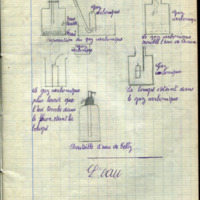 gaz
carbonique
Préparation du gaz carbonique
gaz
carbonique
trouble l'eau de chaux
gaz carbonique
Le gaz carbonique
plus lourd que
l'air tombe dans
le
bougie
gaz
carbonique
La bougie s'éteint dans
le gaz carbonique
Bouteille d'eau de Seltz
L'eau